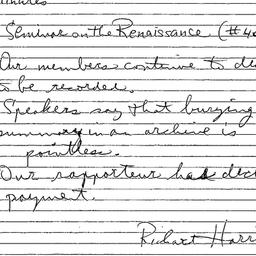 Seminar on the Renaissance (#4
Our members continue to de
to be recorded.
Speakers say that burying
summary in an archive is
pointless.
Our rapporteur has decl
payment.
Richard Harri